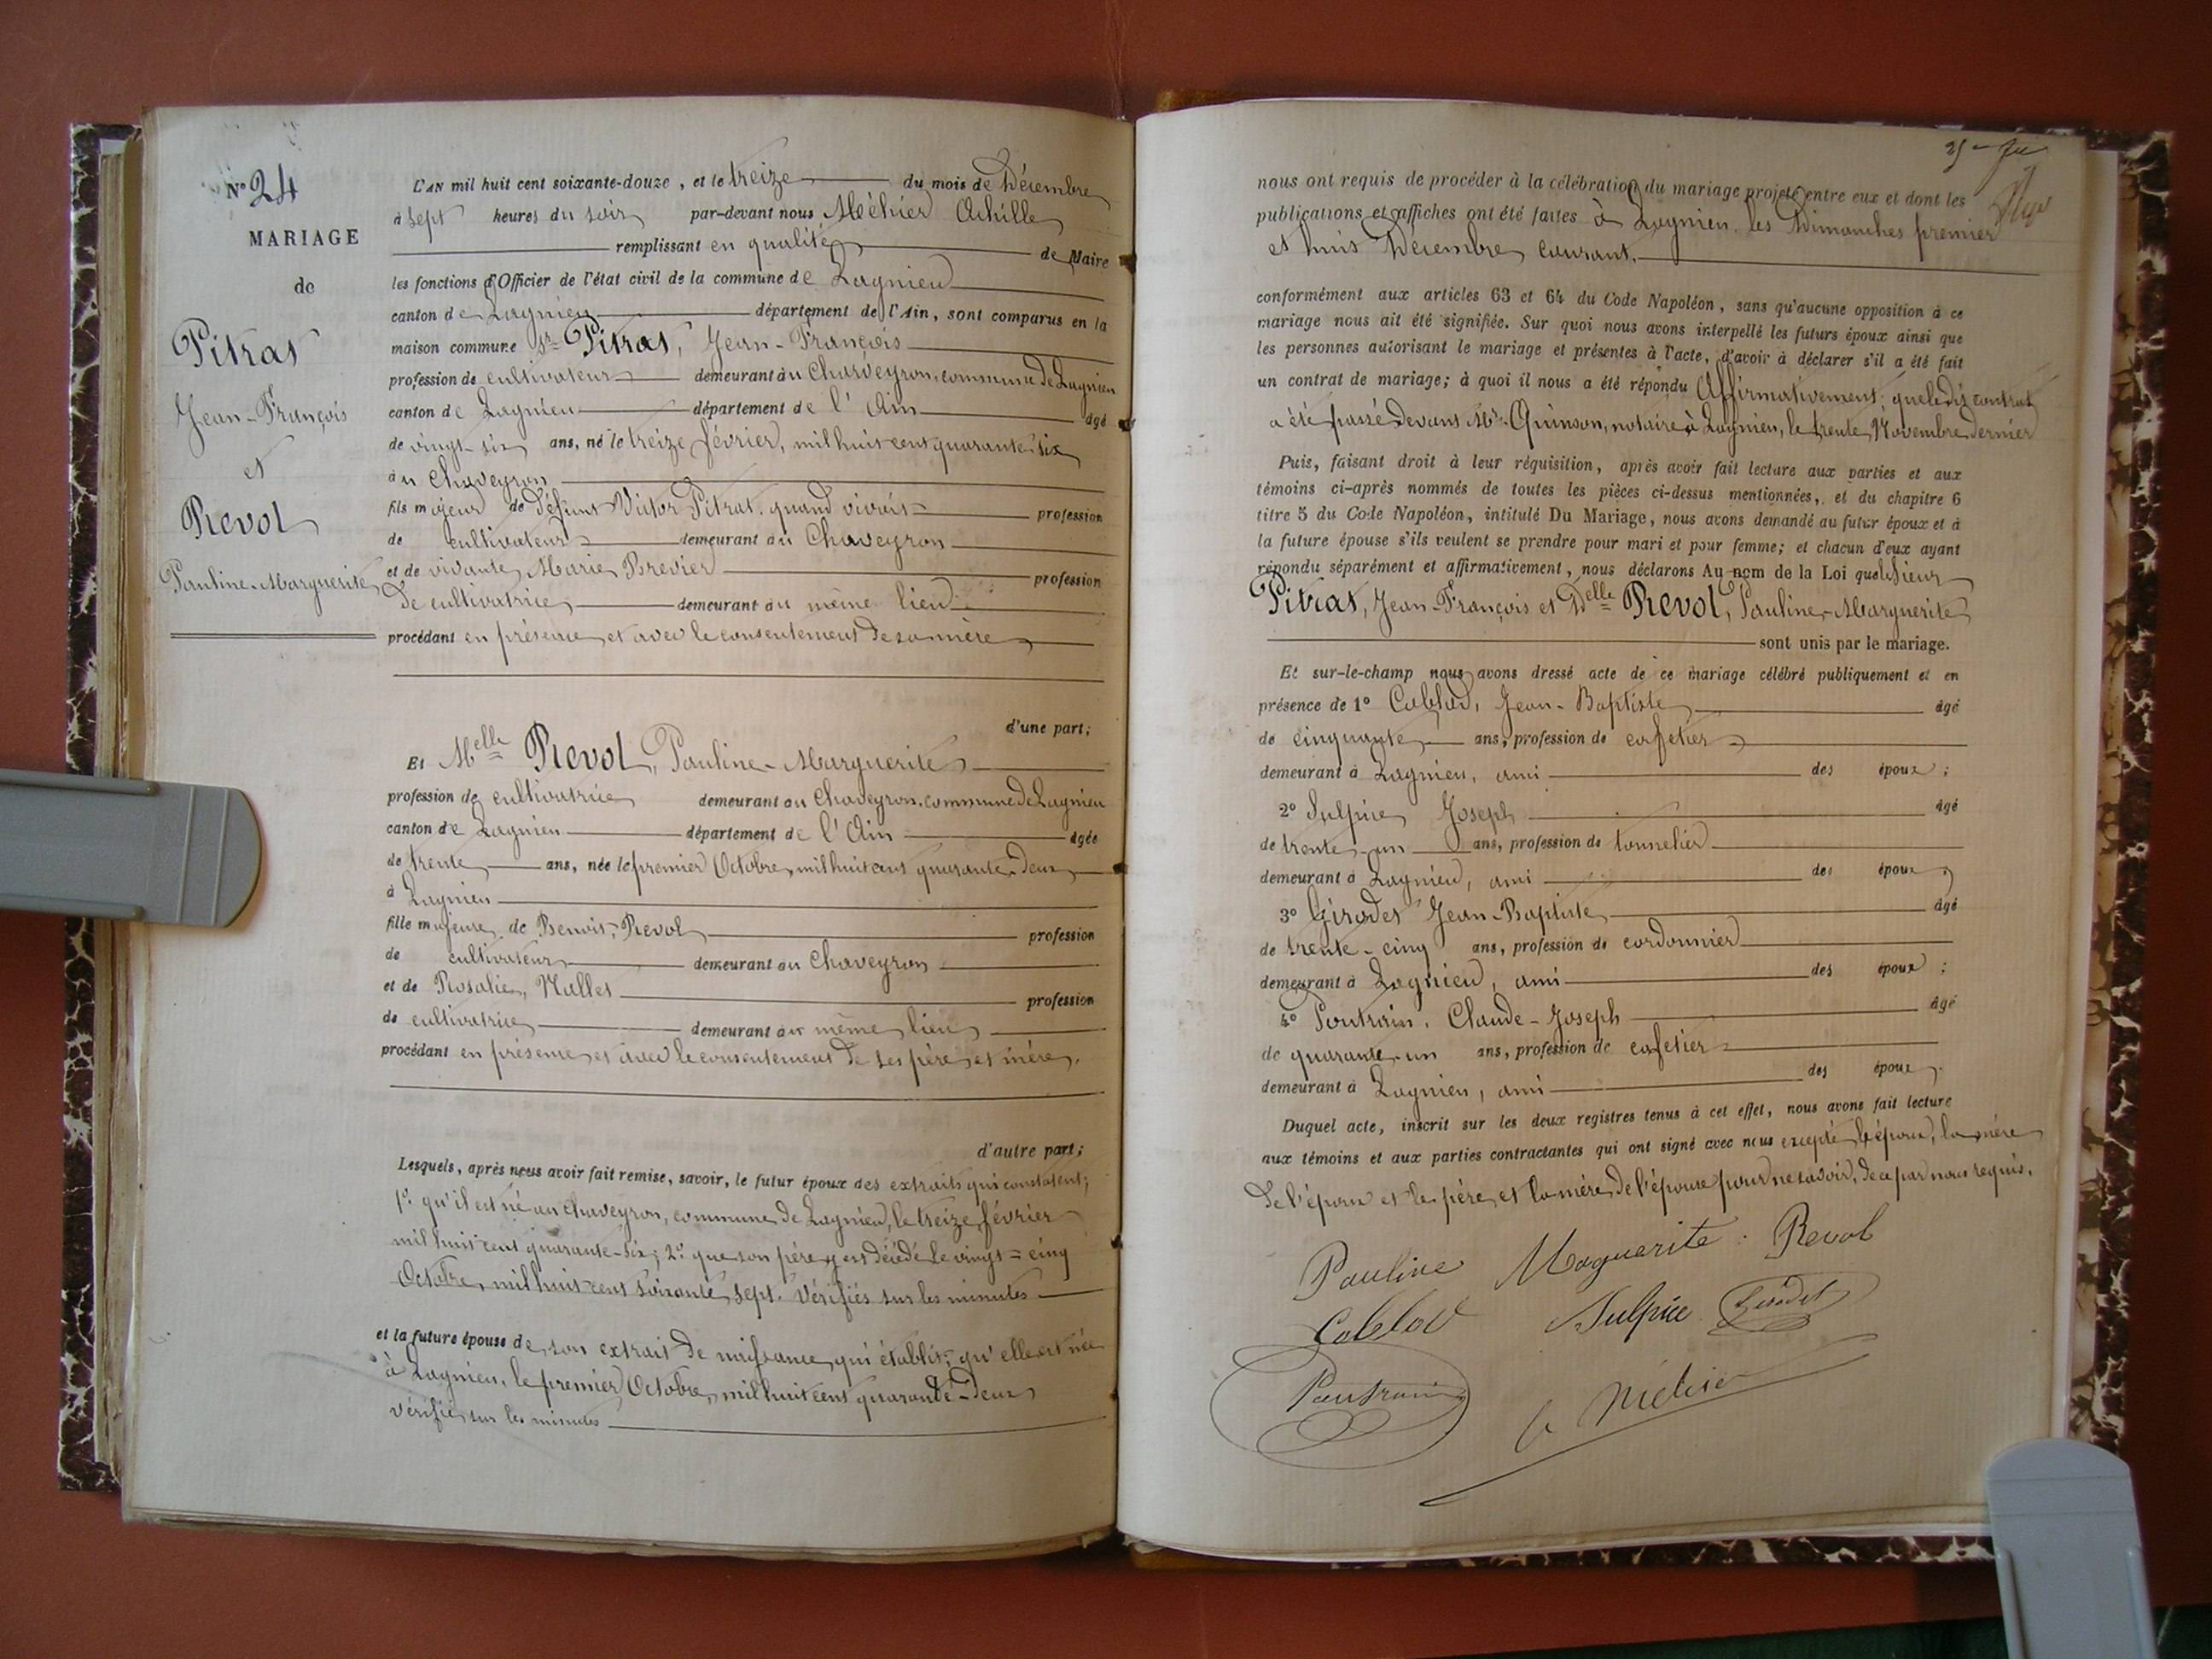 N° 24
MARIAGE
de
Pitrat
Jean-François
et
Revol
Pauline-Marguerite
L'AN mil huit cent soixante-douze, et le treize du mois de Décembre
à sept heures du soir par-devant nous Méhier Achille
remplissant en qualité de Maire
les fonctions d'Officier de l'état civil de la commune de Lagnieu
canton de Lagnieu département de l'Ain, sont comparus en la
maison commune Sr Pitrat, Jean-François
profession de cultivateur demeurant au Chaveyron, commune de Lagnieu
canton de Lagnieu département de l'Ain âgé
de vingt-six ans, né le treize février, mil huit cent quarante-six
au Chaveyron
fils majeur de défunt Victor Pitrat, quand vivait profession
de cultivateur demeurant au Chaveyron
et de vivante Marie Brevier profession
de cultivatrice demeurant au même lieu
procédant en présence et avec le consentement de sa mère
d'une part;
Et Melle Revol, Pauline-Marguerite
profession de cultivatrice demeurant au Chaveyron, commune de Lagnieu
canton de Lagnieu département de l'Ain âgée
de trente ans, née le premier Octobre, mil huit cent quarante-deux
à Lagnieu
fille majeure de Benoit Revol profession
de cultivateur demeurant au Chaveyron
et de Rosalie Mallet profession
de cultivatrice demeurant au même lieu
procédant en présence et avec le consentement de ses père et mère.
d'autre part;
Lesquels, après nous avoir fait remise, savoir, le futur époux des extraits qui constatent;
1° qu'il est né au Chaveyron, commune de Lagnieu, le treize février
mil huit cent quarante-six; 2° que son père y est décédé le vingt=cinq
Octobre, mil huit cent soixante sept. Vérifiés sur les minutes
et la future épouse de son extrait de naissance, qui établit, qu'elle est née
à Lagnieu, le premier Octobre, mil huit cent quarante-deux
vérifié sur les minutes
25
nous ont requis de procéder à la célébration du mariage projeté entre eux et dont les
publications et affiches ont été faites à Lagnieu, les Dimanches premier
et huit Décembre courant.
conformément aux articles 63 et 64 du Code Napoléon, sans qu'aucune opposition à ce
mariage nous ait été signifiée. Sur quoi nous avons interpellé les futurs époux ainsi que
les personnes autorisant le mariage et présentes à l'acte, d'avoir à déclarer s'il a été fait
un contrat de mariage; à quoi il nous a été répondu Affirmativement; que le dit contrat
a été passé devant Me Quinson, notaire à Lagnieu, le trente Novembre dernier
Puis, faisant droit à leur réquisition, après avoir fait lecture aux parties et aux
témoins ci-après nommés de toutes les pièces ci-dessus mentionnées, et du chapitre 6
titre 5 du Code Napoléon, intitulé Du Mariage, nous avons demandé au futur époux et à
la future épouse s'ils veulent se prendre pour mari et pour femme; et chacun d'eux ayant
répondu séparément et affirmativement, nous déclarons Au nom de la Loi que le Sieur
Pitrat, Jean-François et Delle Revol, Pauline-Marguerite
sont unis par le mariage.
Et sur-le-champ nous avons dressé acte de ce mariage célébré publiquement et en
présence de 1° Jean-Baptiste âgé
de cinquante ans, profession de cafetier
demeurant à Lagnieu, ami des époux;
2° Sulpice Joseph âgé
de trente-un ans, profession de tonnelier
demeurant à Lagnieu, ami des époux;
3° Girodet Jean-Baptiste âgé
de trente-cinq ans, profession de cordonnier
demeurant à Lagnieu, ami des époux;
4° Poutrain, Claude-Joseph âgé
de quarante-un ans, profession de cafetier
demeurant à Lagnieu, ami des époux.
Duquel acte, inscrit sur les deux registres tenus à cet effet, nous avons fait lecture
aux témoins et aux parties contractantes qui ont signé avec nous excepté l'époux, la mère
de l'époux et le père et la mère de l'épouse pour ne savoir, de ce par nous requis.
Pauline Maguerite Revol
Sulpice Girodet
Poutrain
Méhier